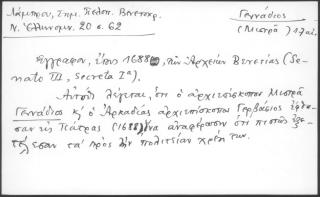 Λάμπρου, Σημ. Πελοπ. Βενετοκρ.
Ν. Ἑλληνομν. 20 σ. 62
Γεννάδιος
(Μυστρᾶ)
Ἔγγραφον, ἔτους 1688, τῶν Ἀρχείων Βενετίας (Se-
nato III, Secreta Iα).
Αὐτοῦ λέγεται, ὅτι ὁ ἀρχιεπίσκοπος Μυστρᾶ
Γεννάδιος κ' ὁ Ἀρκαδίας ἀρχιεπίσκοπος Γερβάσιος
σαν εἰς Πάτρας (1688) ἵνα ἀναφέρωσιν ὅτι πιστῶς ἐξε-
τέλεσαν τὰ πρὸς τὴν πολιτείαν χρέη των.